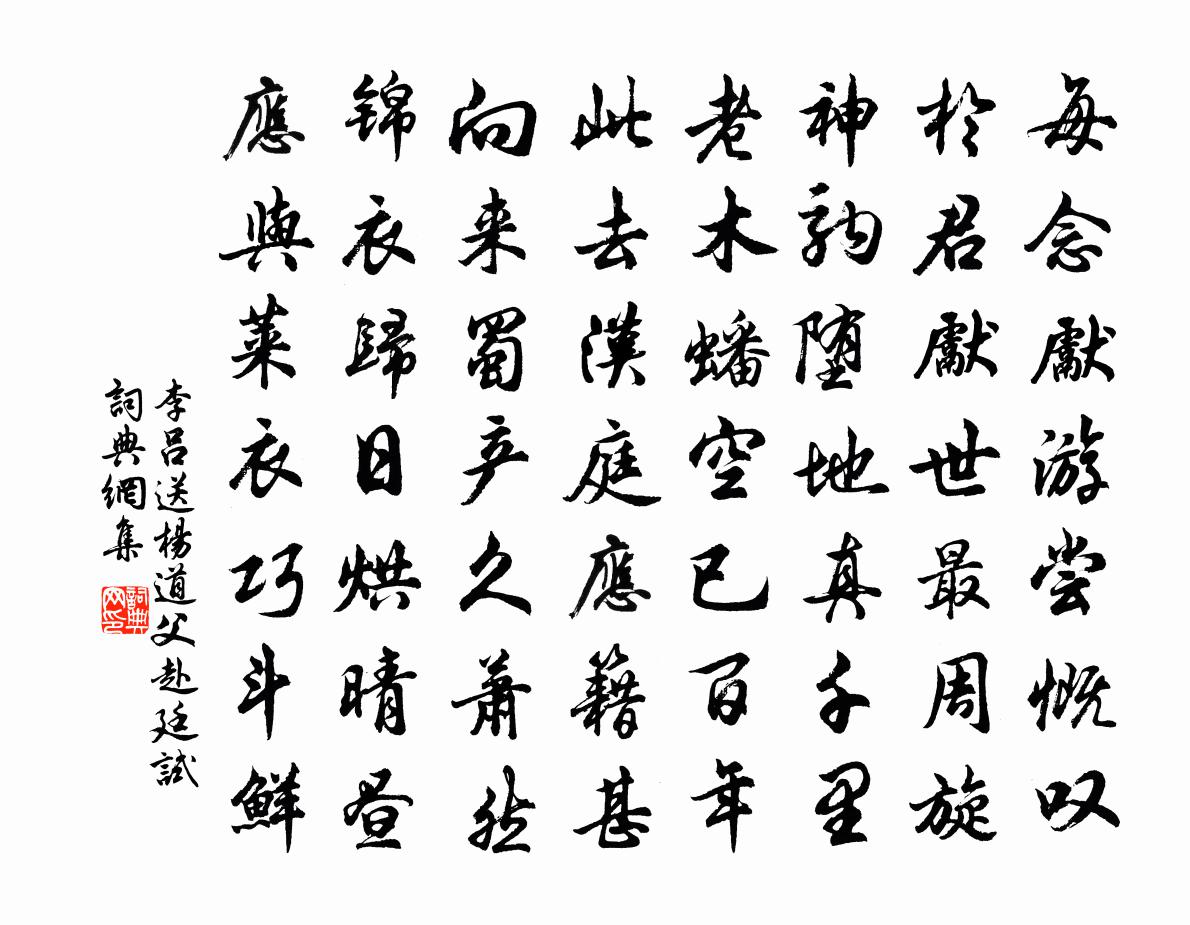 每念獻游尝慨叹
於君獻世最周旋
神駒堕地真千里
老木蟠空已百年
此去漢庭應籍甚
向来蜀产久萧然
锦衣歸日烘晴昼
應與莱衣巧斗鮮
李吕送楊道父赴廷試
詞典網集
詞典网印